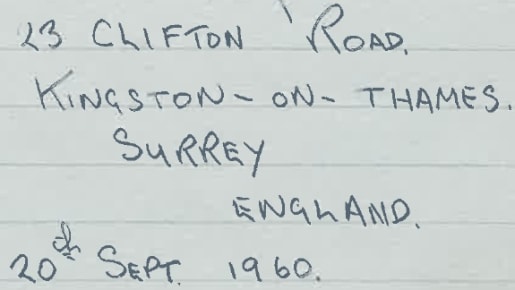 23 CLIFTON ROAD.
KINGSTON-ON-THAMES.
SURREY
ENGLAND.
20th SEPT. 1960.